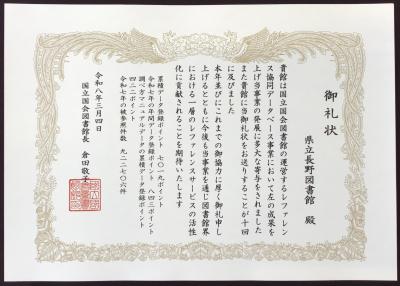 御礼状
県立長野図書館 殿
貴館は国立国会図書館の運営するレファレン
ス協同データベース事業において左の成果を
上げ当事業の発展に多大な寄与をされました
また貴館に当御礼状をお送りすることが十回
に及びました
本年並びにこれまでの御協力に厚く御礼申し
上げるとともに今後も当事業を通じ図書館界
における一層のレファレンスサービスの活性
化に貢献されることを期待いたします
累積データ登録ポイント 七〇一九ポイント
令和七年の年間データ登録ポイント 一四三ポイント
調べ方マニュアルデータの累積データ登録ポイント
四二二ポイント
令和七年の被参照件数 九二二七〇六件
令和八年三月四日
国立国会図書館長 倉田敬子